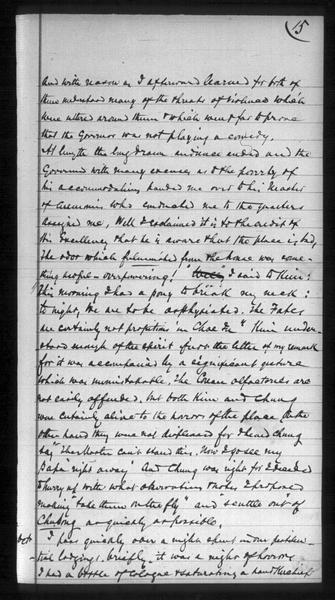 15
and with reason as I afterward learned for both of
them understood many of the threats of violence which
were uttered around them & which went far to prove
that the Governor was not playing a comedy.
At length the long drawn audience ended and the
Governor with many excuses as to the poverty of
his accommodations handed me over to his
who conducted me to the quarters
assigned me, Well I exclaimed it is to the credit of
His Excellency that he is aware that the place is bad,
The odor which fulminated from the house was some-
thing people - overpowering! I said to Kim:
This morning I had a pony to break my neck:
to night, we are to be asphyxiated. The Fates
are certainly not propitious in Kim under-
stood enough of the spirit if not the letter of my remark
for it was accompanied by a significant gesture
which was unmistakable. The Corean olfactories are
not easily offended, but both Kim and Chung
were certainly alive to the horrors of the place. On the
other hand they were not displeased for I heard Chung
say "The Master can't stand this. Now I go see my
Papa right away." And Chung was right for I decided
to hurry up with what observations & notes I proposed
making "take them on the fly" and "scuttle out" of
as quickly as possible.
I pass quickly over a night spent in our
lodgings, briefly it was a night of horrors
I had a bottle of Cologne & saturating a handkerchief